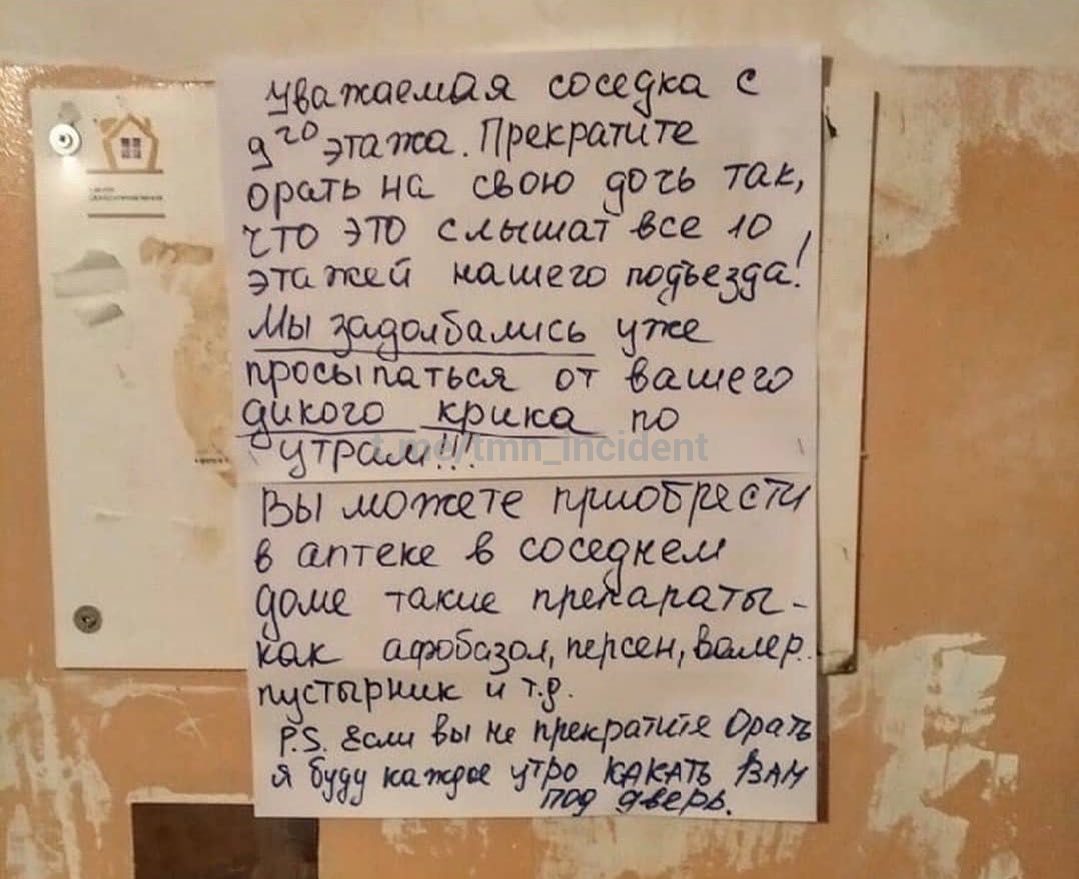 Уважаемая соседка с
9го этажа. Прекратите
орать на свою дочь так,
что это слышат все 10
этажей нашего подъезда!
Мы задолбались уже
просыпаться от вашего
дикого крика по
утрам!!!
t.me/tmn_incident
Вы можете приобрести
в аптеке в соседнем
доме такие препараты -
как афобазол, персен, валер.
пустырник и т.д.
P.S. Если вы не прекратите Орать
я буду каждое утро КАКАТЬ ВАМ
под дверь.